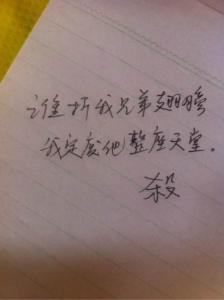 谁折我兄弟翅膀
我定废他整座天堂。
殺